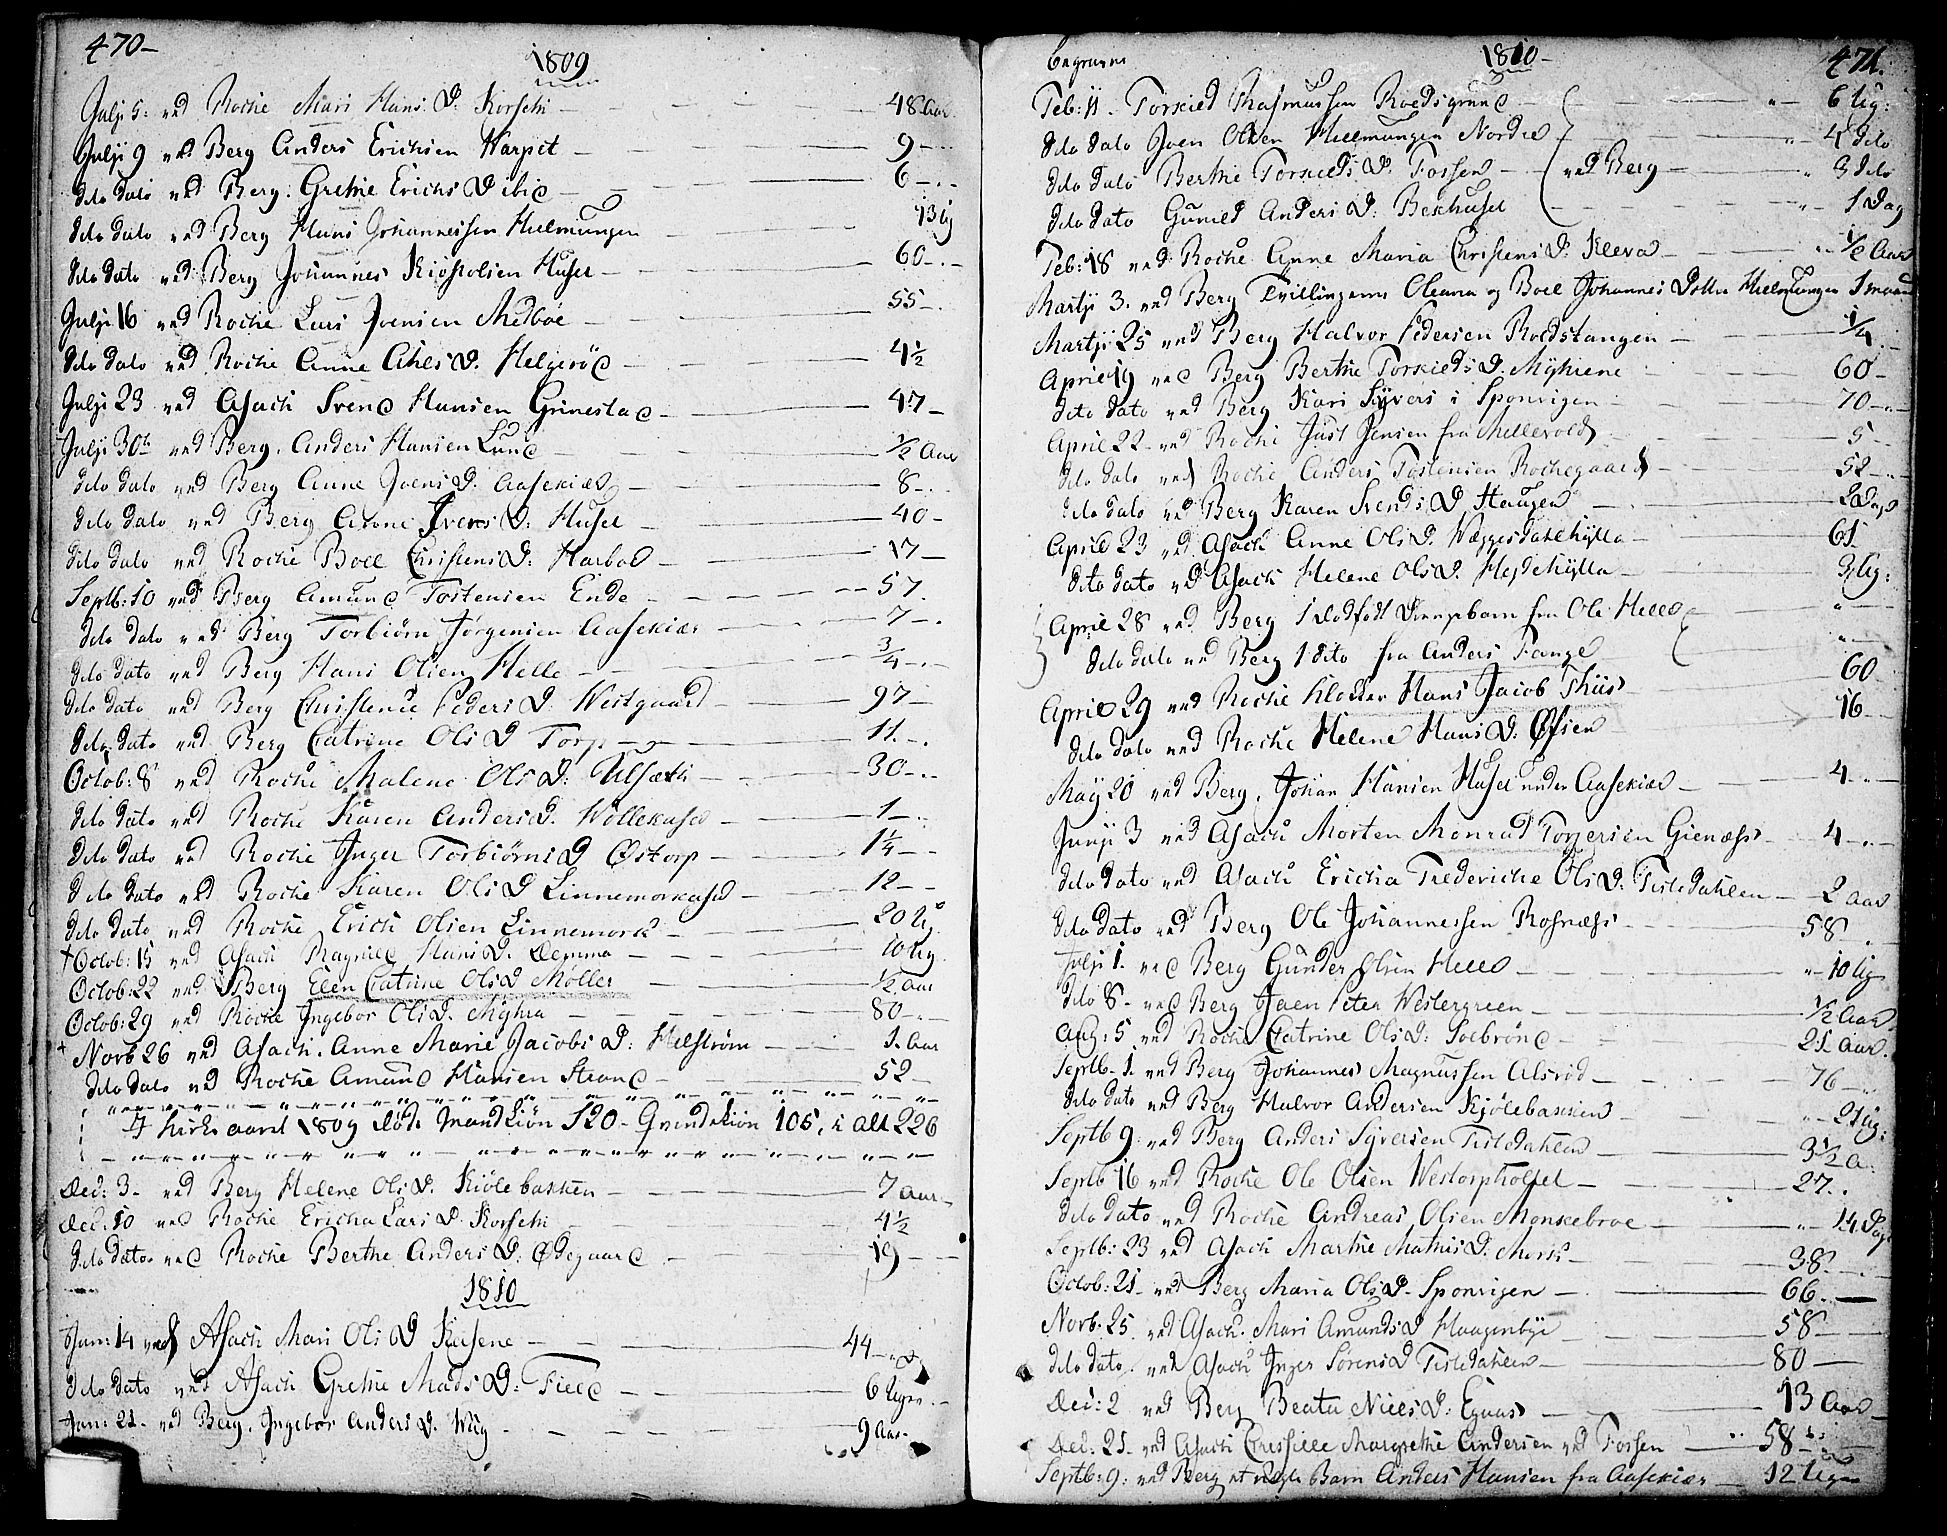 470-
1809
Julji 5: ved Roche Mari Hans D: Korseth - 48 Aar
Julji 9 ved Berg Anders Erichsen Karpet - 9 -
dito dato ved Berg. Grethe Erichs D ibid - 6 -
dito dato ved Berg Hans Johannessen Hielmungen 13 Ug
dito dato ved Berg Johannes Kiøstolsen Huset - 60 -
Julji 16 ved Roche Lars Joensen Melbøe - 55 -
dito dato ved Roche Anne Ahles D. Helgerød - 4 1/2
Julji 23 ved Asach Svend Hansen Grinestad - 47 -
Julji 30te ved Berg. Anders Hansen Lund - 1/2 Aar
dito dato ved Berg Anne Joens D. Aasekiær - 8 -
dito dato ved Berg Anne Ivers D: Huset - 40 -
dito dato ved Roche Boel Christens D: Harboe - 17 -
Septb: 10 ved Berg Amund Tostensen Ende - 57.
dito dato ved Berg Torbiørn Jørgensen Aasekiær - 7 -
dito dato ved Berg Hans Olsen Helle - 3/4 -
dito dato ved Berg Christence Peders D: Westgaard - 97 -
dito dato ved Berg Catrine Ols D Torp - 11. -
Octob: 8 ved Roche Malene Ols D: Ulsæth - 30 -
dito dato ved Roche Karen Anders D. Wollekasa - 1 -
dito dato ved Roche Inger Torbiørns D Østorp - 1 1/4 -
dito dato ved Roche Karen Ols D Linnemorkasa - 12 -
dito dato ved Roche Erich Olsen Linnemork - 20 Ug
+ Octob: 15 ved Asach Ragnild Hans D. Demma - 10 Ug.
Octob: 22 ved Berg Elen Catrine Ols D Møller - 1/2 Aar
Octob: 29 ved Roche Ingebor Ols D. Myhra - 80 -
+ Novb 26 ved Asach. Anne Marie Jacobs D: Helstrøm - 1. Aar
dito dato ved Roche Amund Hansen Strand - 52 -
I Kirke aaret 1809 døde Mandkiøn 120 - Qvindekiøn 106, i alt 226
Dec: 3 - ved Berg Helene Ols D. Kiølebakken - 7 Aar -
Dec: 10 ved Roche Ericha Lars D. Korseth - 4 1/2
dito dato ved Roche Berthe Anders D: Ødegaard - 19 -
1810
Jan: 14 ved Asach Mari Ols D Kasene - 44 -
dito dato ved Asach Grethe Mads D: Field - 6 Uger -
Jan: 21 - ved Berg. Ingebor Anders D. Wiig - 9 Aar -
begravne 1810 - 471.
Feb: 11 - Torkield Rasmussen Roedsgrund - 6 Ug:
dito dato Joen Olsen Hielmungen Nordre - 4 dito
dito dato Berthe Torkields D. Fossen - ved Berg - 3 dito
dito dato Gunild Anders D: Bekhuset - 1 Dag
Feb: 18 ved Roche Anne Maria Christens D. Kleva - 1/2 Aar
Martji 3. ved Berg Tvillingerne Oleana og Boel Johannes Dottre Hielmungen 1 maaned
Martji 25 ved Berg Halvor Pedersen Roedstangen - 1/4 -
April 19 ved Berg Berthe Torkields D. Myhrene 60 -
dito dato ved Berg Kari Syvers i Sponvigen - 70 -
April 22 - ved Roche Just Jensen fra Mellevold - 5 -
dito dato ved Roche Anders Tostensen Rochegaard - 52 -
dito dato ved Berg Karen Svends D. Haugen - 2 Dage
April 23 ved Asach Anne Ols D. Wæggesdahlhylla - 61
dito dato ved Asach Helene Ols D. Hestehylla - 3 Ug:
April 28 ved Berg 1 dødfødt Drengebarn fra Ole Helle
dito dato ved Berg 1 dito fra Anders Fange
April 29 ved Roche Klokker Hans Jacob Thiis 60 -
dito dato ved Roche Helene Hans D. Øfsen 16 -
May 20 ved Berg. Johan Hansen Huset under Aasekiær - 4 -
Junji 3 ved Asach Morten Monrad Torgersen Gienæss - 4 -
dito dato ved Asach Ericha Frederiche Ols D. Tistedahlen - 2 Aar
dito dato ved Berg Ole Johannessen Rosnæss - 58
Julji 1. ved Berg Gunder Olsen Helle - 10 Ug
dito 8 - ved Berg Joen Peter Westergreen - 1/2 Aar
Aug: 5 ved Roche Catrine Ols D: Soebrønd - 21 Aar.
Septb. 1. ved Berg Johannes Magnussen Alsrød - 76 -
dito dato ved Berg Halvor Andersen Kiølebakken - 2 Ug:
Septb 9 ved Berg Anders Syversen Tistedahlen - 3 1/2 A.
Septb 16 ved Roche Ole Olsen Westorpholtet - 27.
dito dato ved Roche Andreas Olsen Monkebroe - 14 Dage
Septb: 23 ved Asach Marthe Mathis D: Mork - 38.
Octob: 21 - ved Berg Maria Ols D - Sponvigen - 66. -
Novb: 25 ved Asach. Mari Amunds D Haagenbye - 58 -
dito dato. ved Asach Inger Sørens D Tistedahlen - 80 -
Dec: 2 ved Berg Beata Niels D: Egnas - 13 Aar
Dec: 21 - ved Asach Margrethe Andersen ved Fossen - 58 -
Septb: 9: ved Berg et Barn Anders Hansen fra Aasekiær - 12 Uger